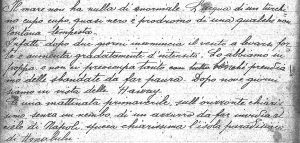 Il mare non ha nulla di anormale. L'acqua di un turchi-
no cupo cupo, quasi nero è prodromo di una qualche
lontana tempesta.
Infatti dopo due giorni incomincia il vento a levarsi, for-
te e aumenta gradatamente d'intensità. Lo abbiamo in
poppa, e non ci preoccupa tanto con tutto perché prendia-
mo delle sbandate da far paura. Dopo nove giorni
siamo in vista delle Haway.
È una mattinata primaverile, sull'orizzonte chiaris-
simo, senza un nembo, di un azzurro da far invidia al
cielo di Napoli, spicca chiarissima l'isola paradisiaca
di Honolulu.